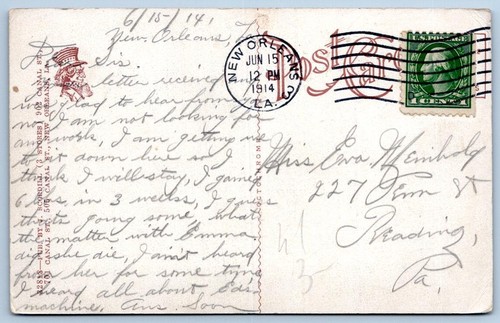 6/15-14.
New Orleans, La
Dear Sis.
letter received and
glad to hear from you
no I am not looking for
any work, I am getting use
to it down here so I
think I will stay, I gained
6 lbs in 3 weeks, I guess
thats going some, what
the matter with Emma
did she die, I aint heard
from her for some time
I heard all about Ed's
machine, Ans. Soon
Post Card
NEW ORLEANS
JUN 15
12 PM
1914
LA.
3
U.S. POSTAGE
Miss Eva Meinholy
227 Penn St
Reading,
Pa.
CANAL ST., NEW ORLEANS, LA.